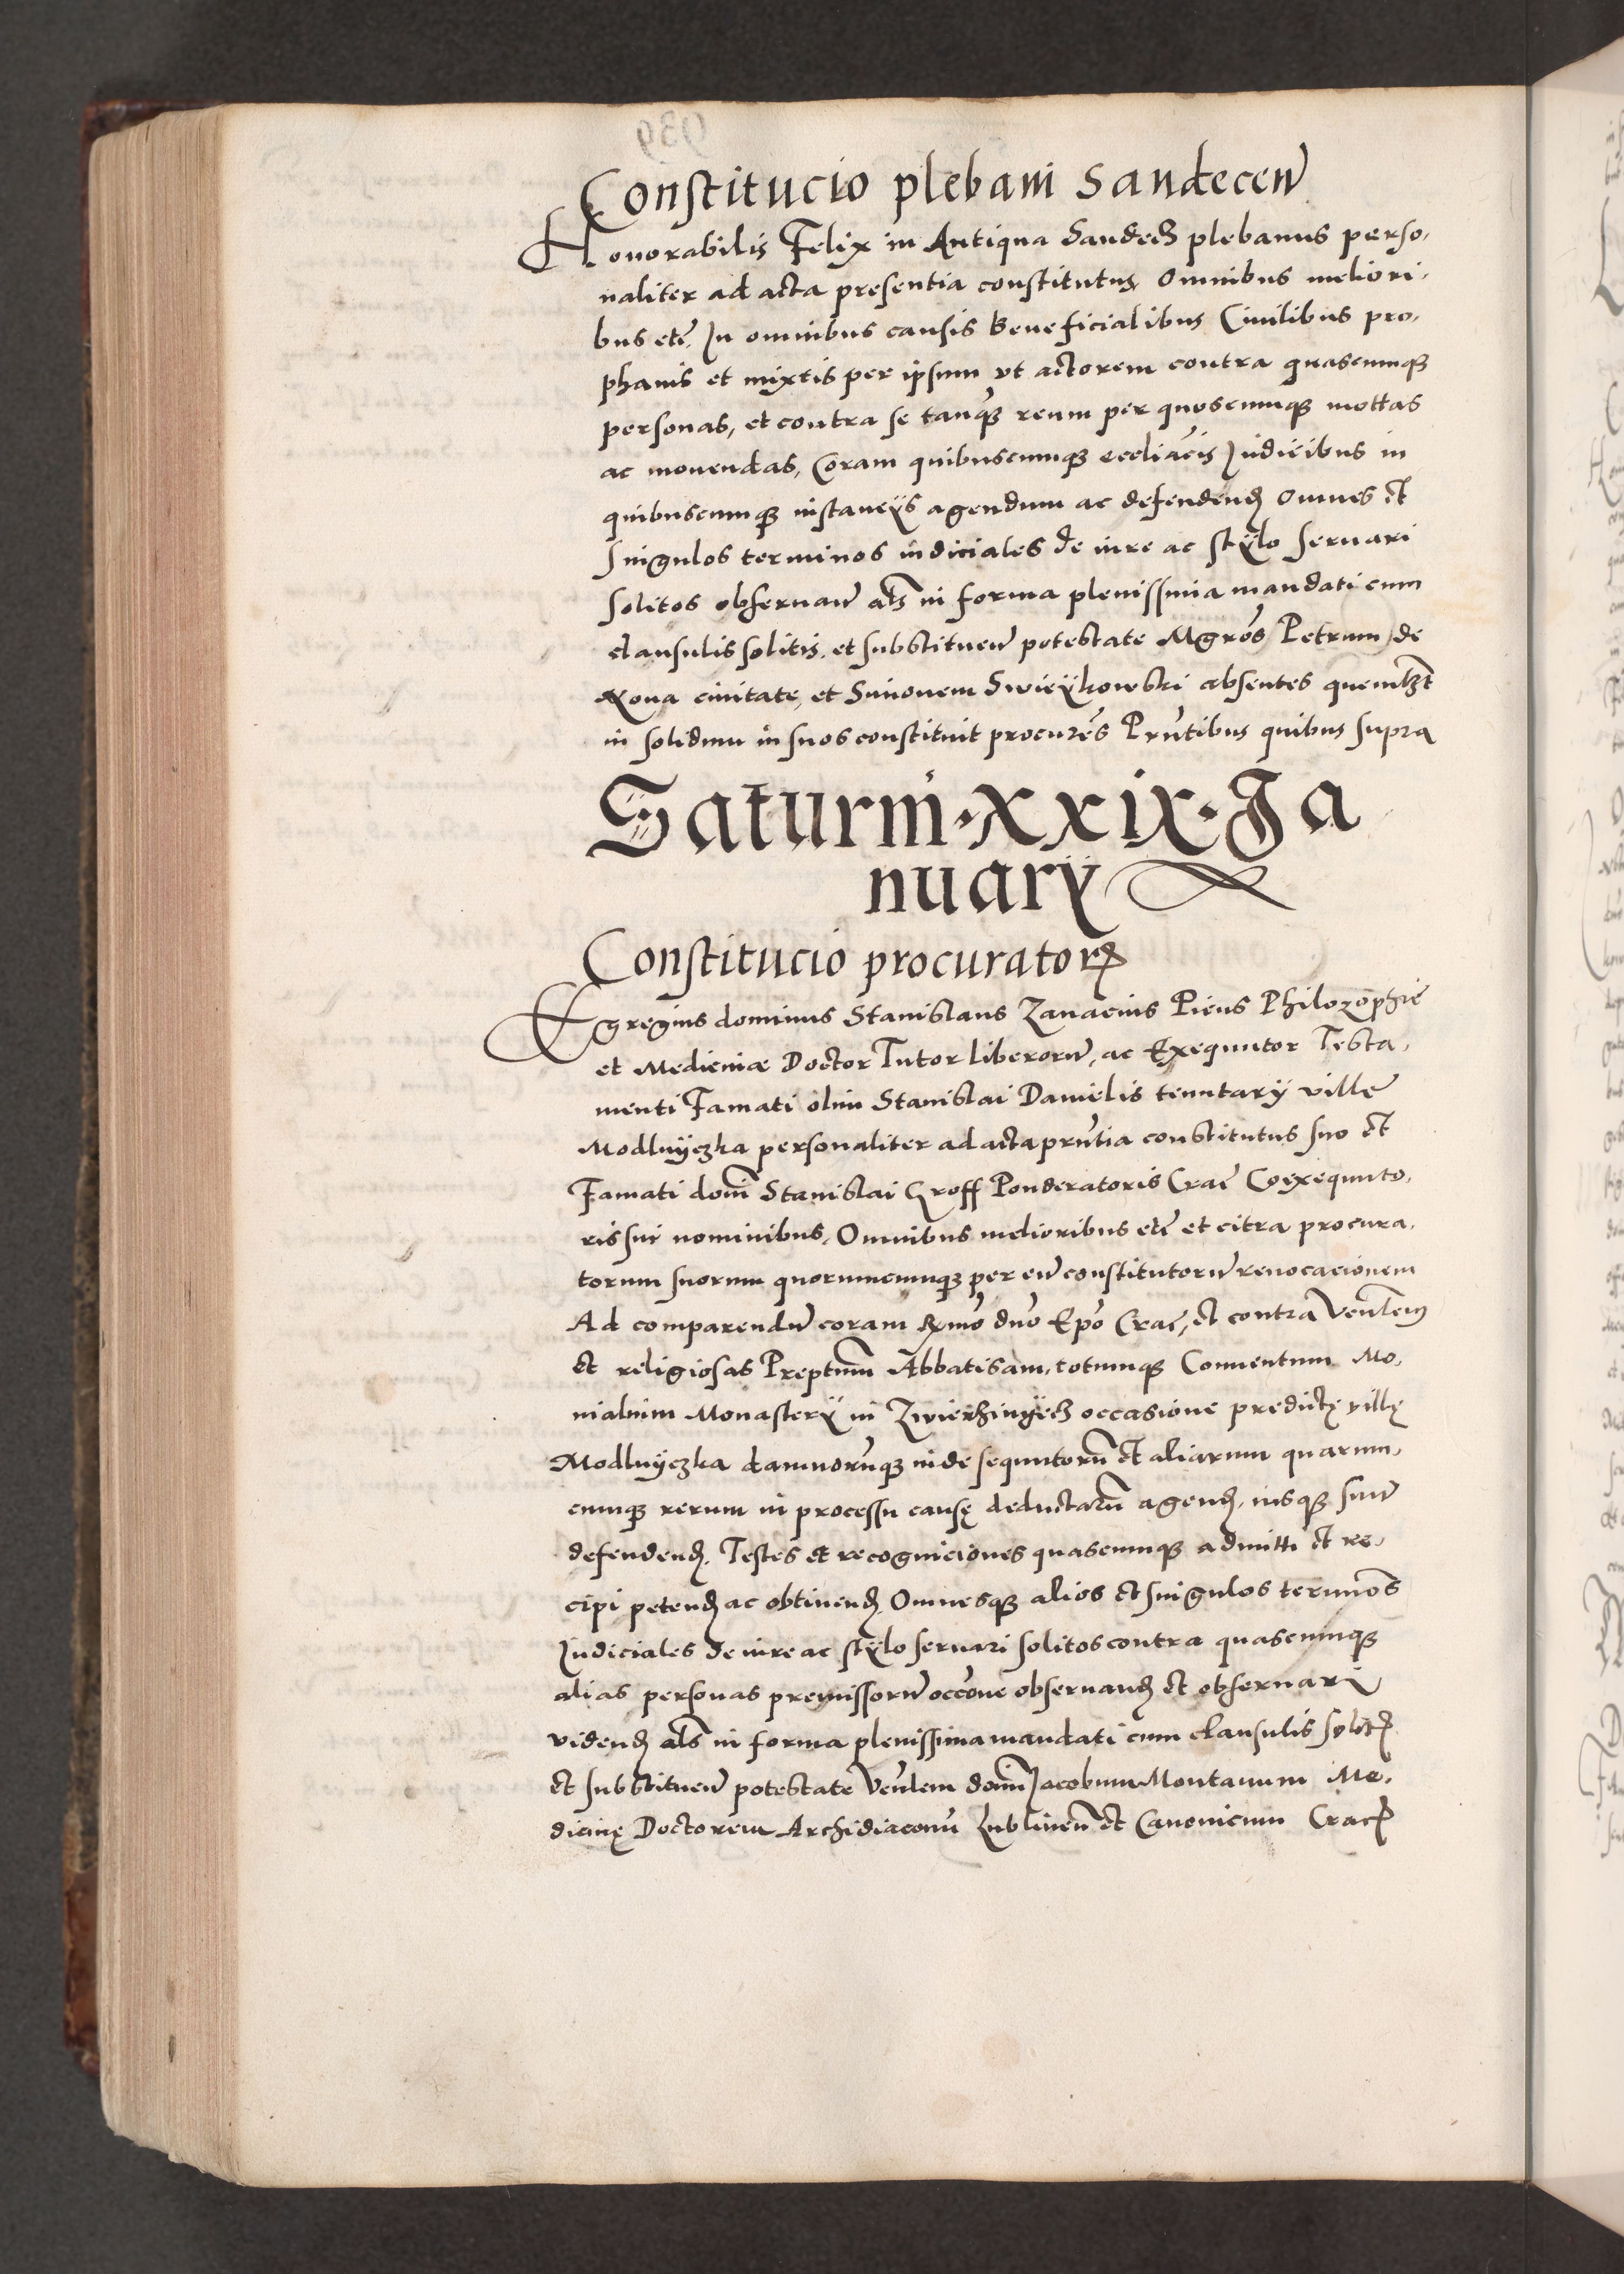 Constitucio plebani Sandeceñ
Honorabilis Felix in Antiqua Sandecz plebanus perso,
naliter ad acta presentia constitutus Omnibus meliori,
bus etč. In omnibus causis beneficialibus Ciuilibus pro,
phanis et mixtis per ipsum vt actorem contra quascumqꝫ
personas, et contra se tanqꝫ reum per quoscumqꝫ mottas
ac mouendas, Coram quibuscumqꝫ eccliācis Judicibus in
quibuscumqꝫ instancÿs agendum ac defendenđ Omnes et
singulos terminos iudiciales de iure ac stÿlo seruari
solitos obseruanđ als in forma plenissima mandati cum
clausulis solitis, et substitueñ potestate Mgros Petrum de
Noua ciuitate, et Simonem Swieÿkowski absentes quemlꝫt
in solidum in suos constituit procures Prñtibus quibus supra
Saturni · xxix · Ja
nuarÿ
Constitucio procuratorꝝ
Egregius dominus Stanislaus Zanacius Picus Philozophie
et Medicinæ Doctor Tutor liberorũ, ac Exequutor Testa,
menti Famati olim Stanislai Danielis tenutarÿ ville
Modlnÿczka personaliter ad acta prñtia constitutus suo et
Famati domi Stanislai Groff Ponderatoris Crac̄ Coexequuto,
ris sui nominibus, Omnibus melioribus etč et citra procura,
torum suorum quorumcumqꝫ per eũ constitutorũ reuocacionem
Ad comparendũ coram Rmo dño Epo Crac̄, et contra Veñlem
et religiosas Preptum Abbatisam, totumqꝫ Conuentum Mo,
nialium Monasterÿ in Zwierzinÿecz occasione predictę villę
Modlnÿczka damnorũqꝫ inde sequutorũ et aliarum quarum,
cumqꝫ rerum in processu causę deductarũ agenđ, iusqꝫ suũ
defendenđ. Testes et recogniciones quascumqꝫ admitti et re,
cipi petenđ ac obtinenđ. Omnesqꝫ alios et singulos termios
Judiciales de iure ac stÿlo seruari solitos contra quascumqꝫ
alias personas premissorũ occõne obseruanđ et obseruari
videnđ als in forma plenissima mandati cum clausulis solitꝭ
et substitueñ potestate Veñlem domi Jacobum Montanum Me,
dicinę Doctorem Archidiaconũ Lublineñ et Canonicum Cracꝭ